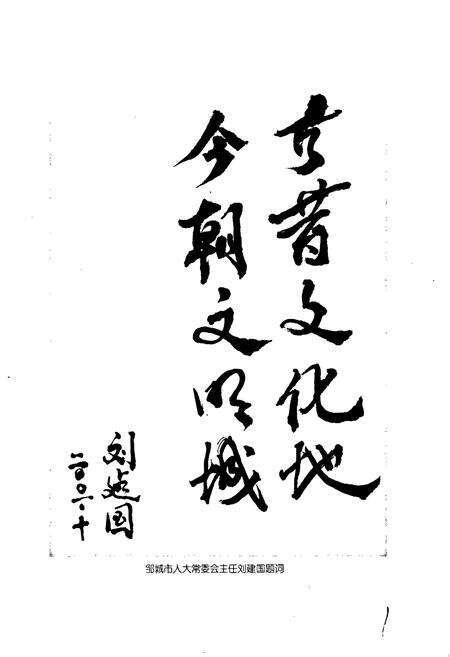 古昔文化地
今朝文明城
刘建国
二〇〇一·十
邹城市人大常委会主任刘建国题词